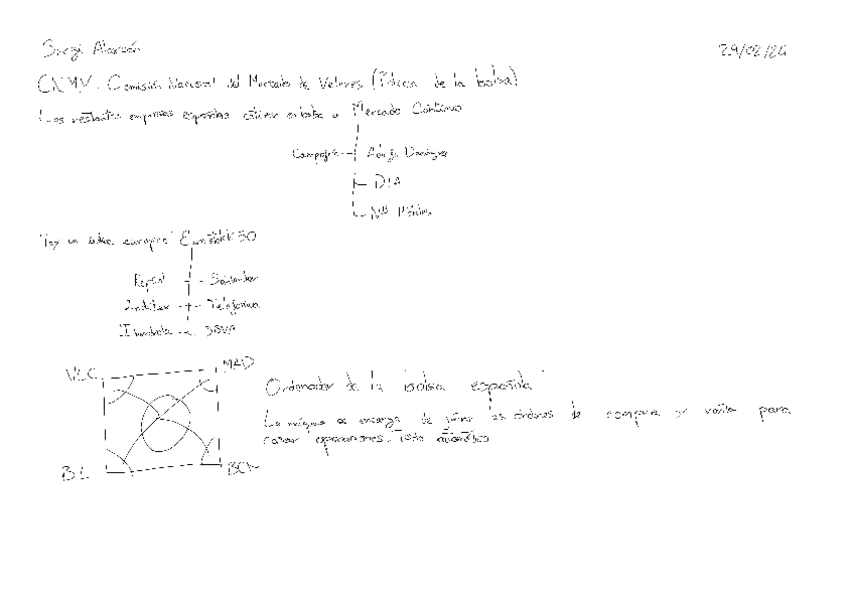 Sergi Alarcón 29/02/24
CNMV. Comisión Nacional del Mercado de Valores (Policia de la bolsa)
Las restantes empresas españolas cotizan en bolsa a Mercado Continuo
Campofrío Adolfo Domínguez
DIA
NH Hoteles
Hay un índice europeo Eurostoxx 50
Repsol Santander
Inditex Telefónica
Iberdrola BBVA
VLC MAD
Ordenador de la bolsa española
La máquina se encarga de juntar las órdenes de compra y venta para
casar operaciones. Todo automático
BIL BCN